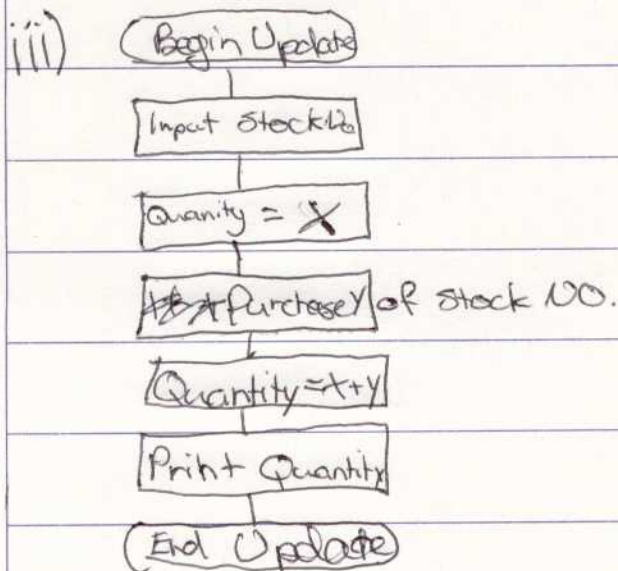 iii) Begin Update
Input StockNo
Quanity = X
PurchaseY of stock NO.
Quantity=X+Y
Print Quantity
End Update